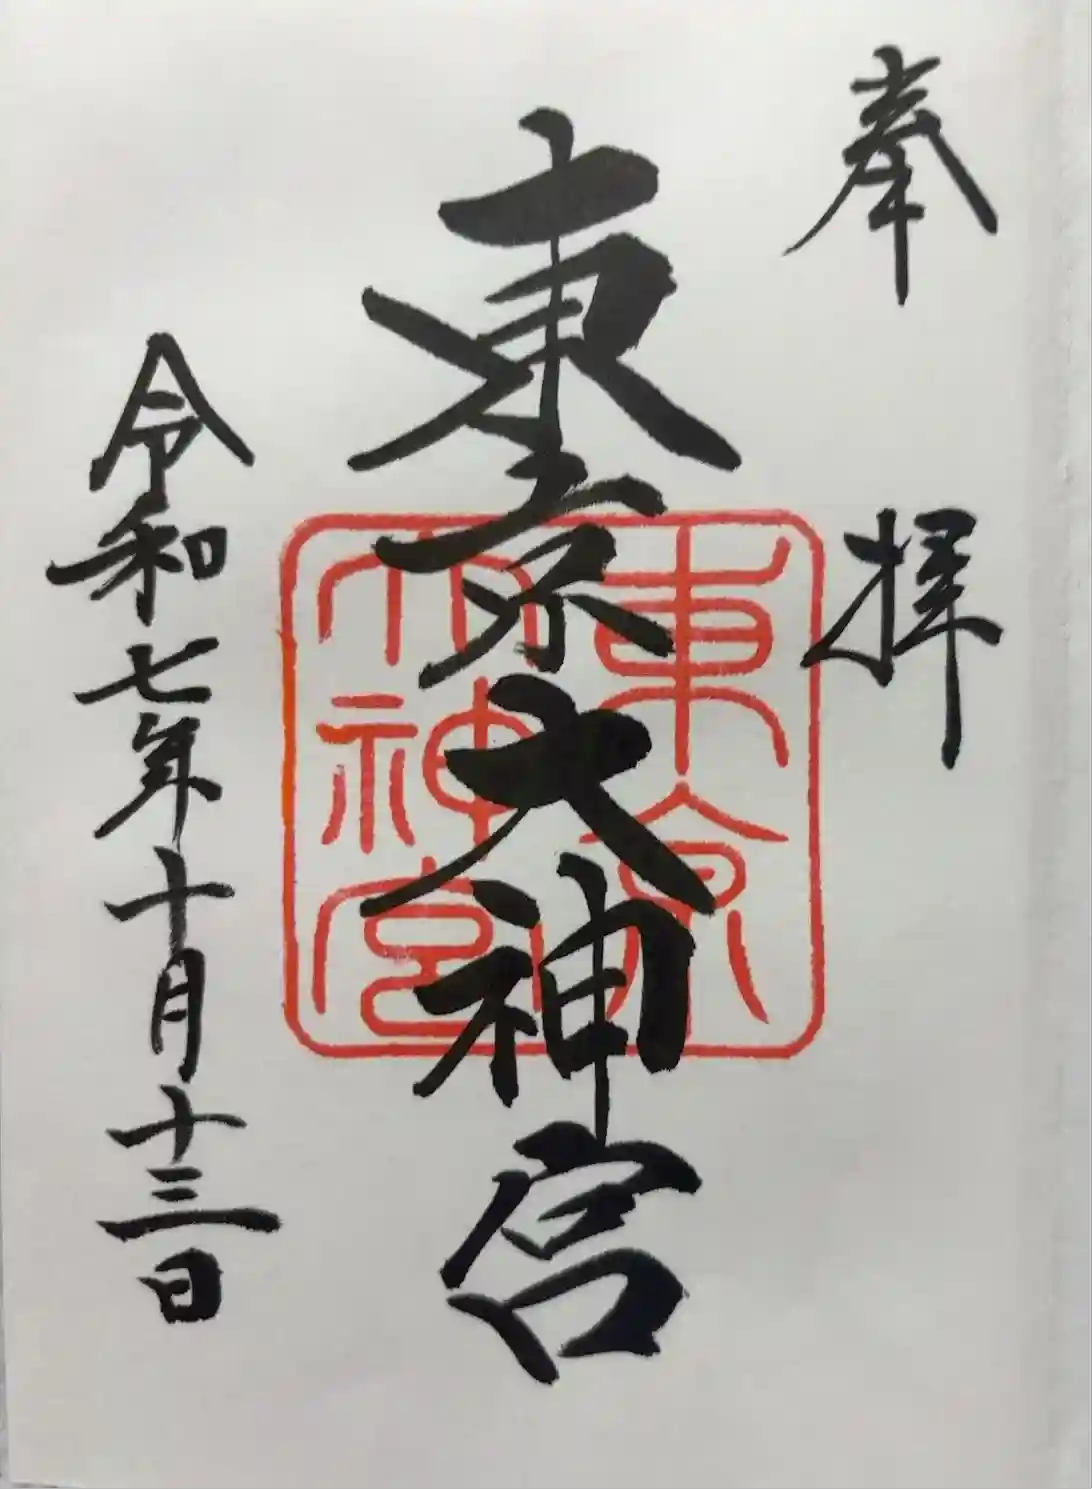 奉拝
東京大神宮
東京
大神宮
令和七年十月十三日